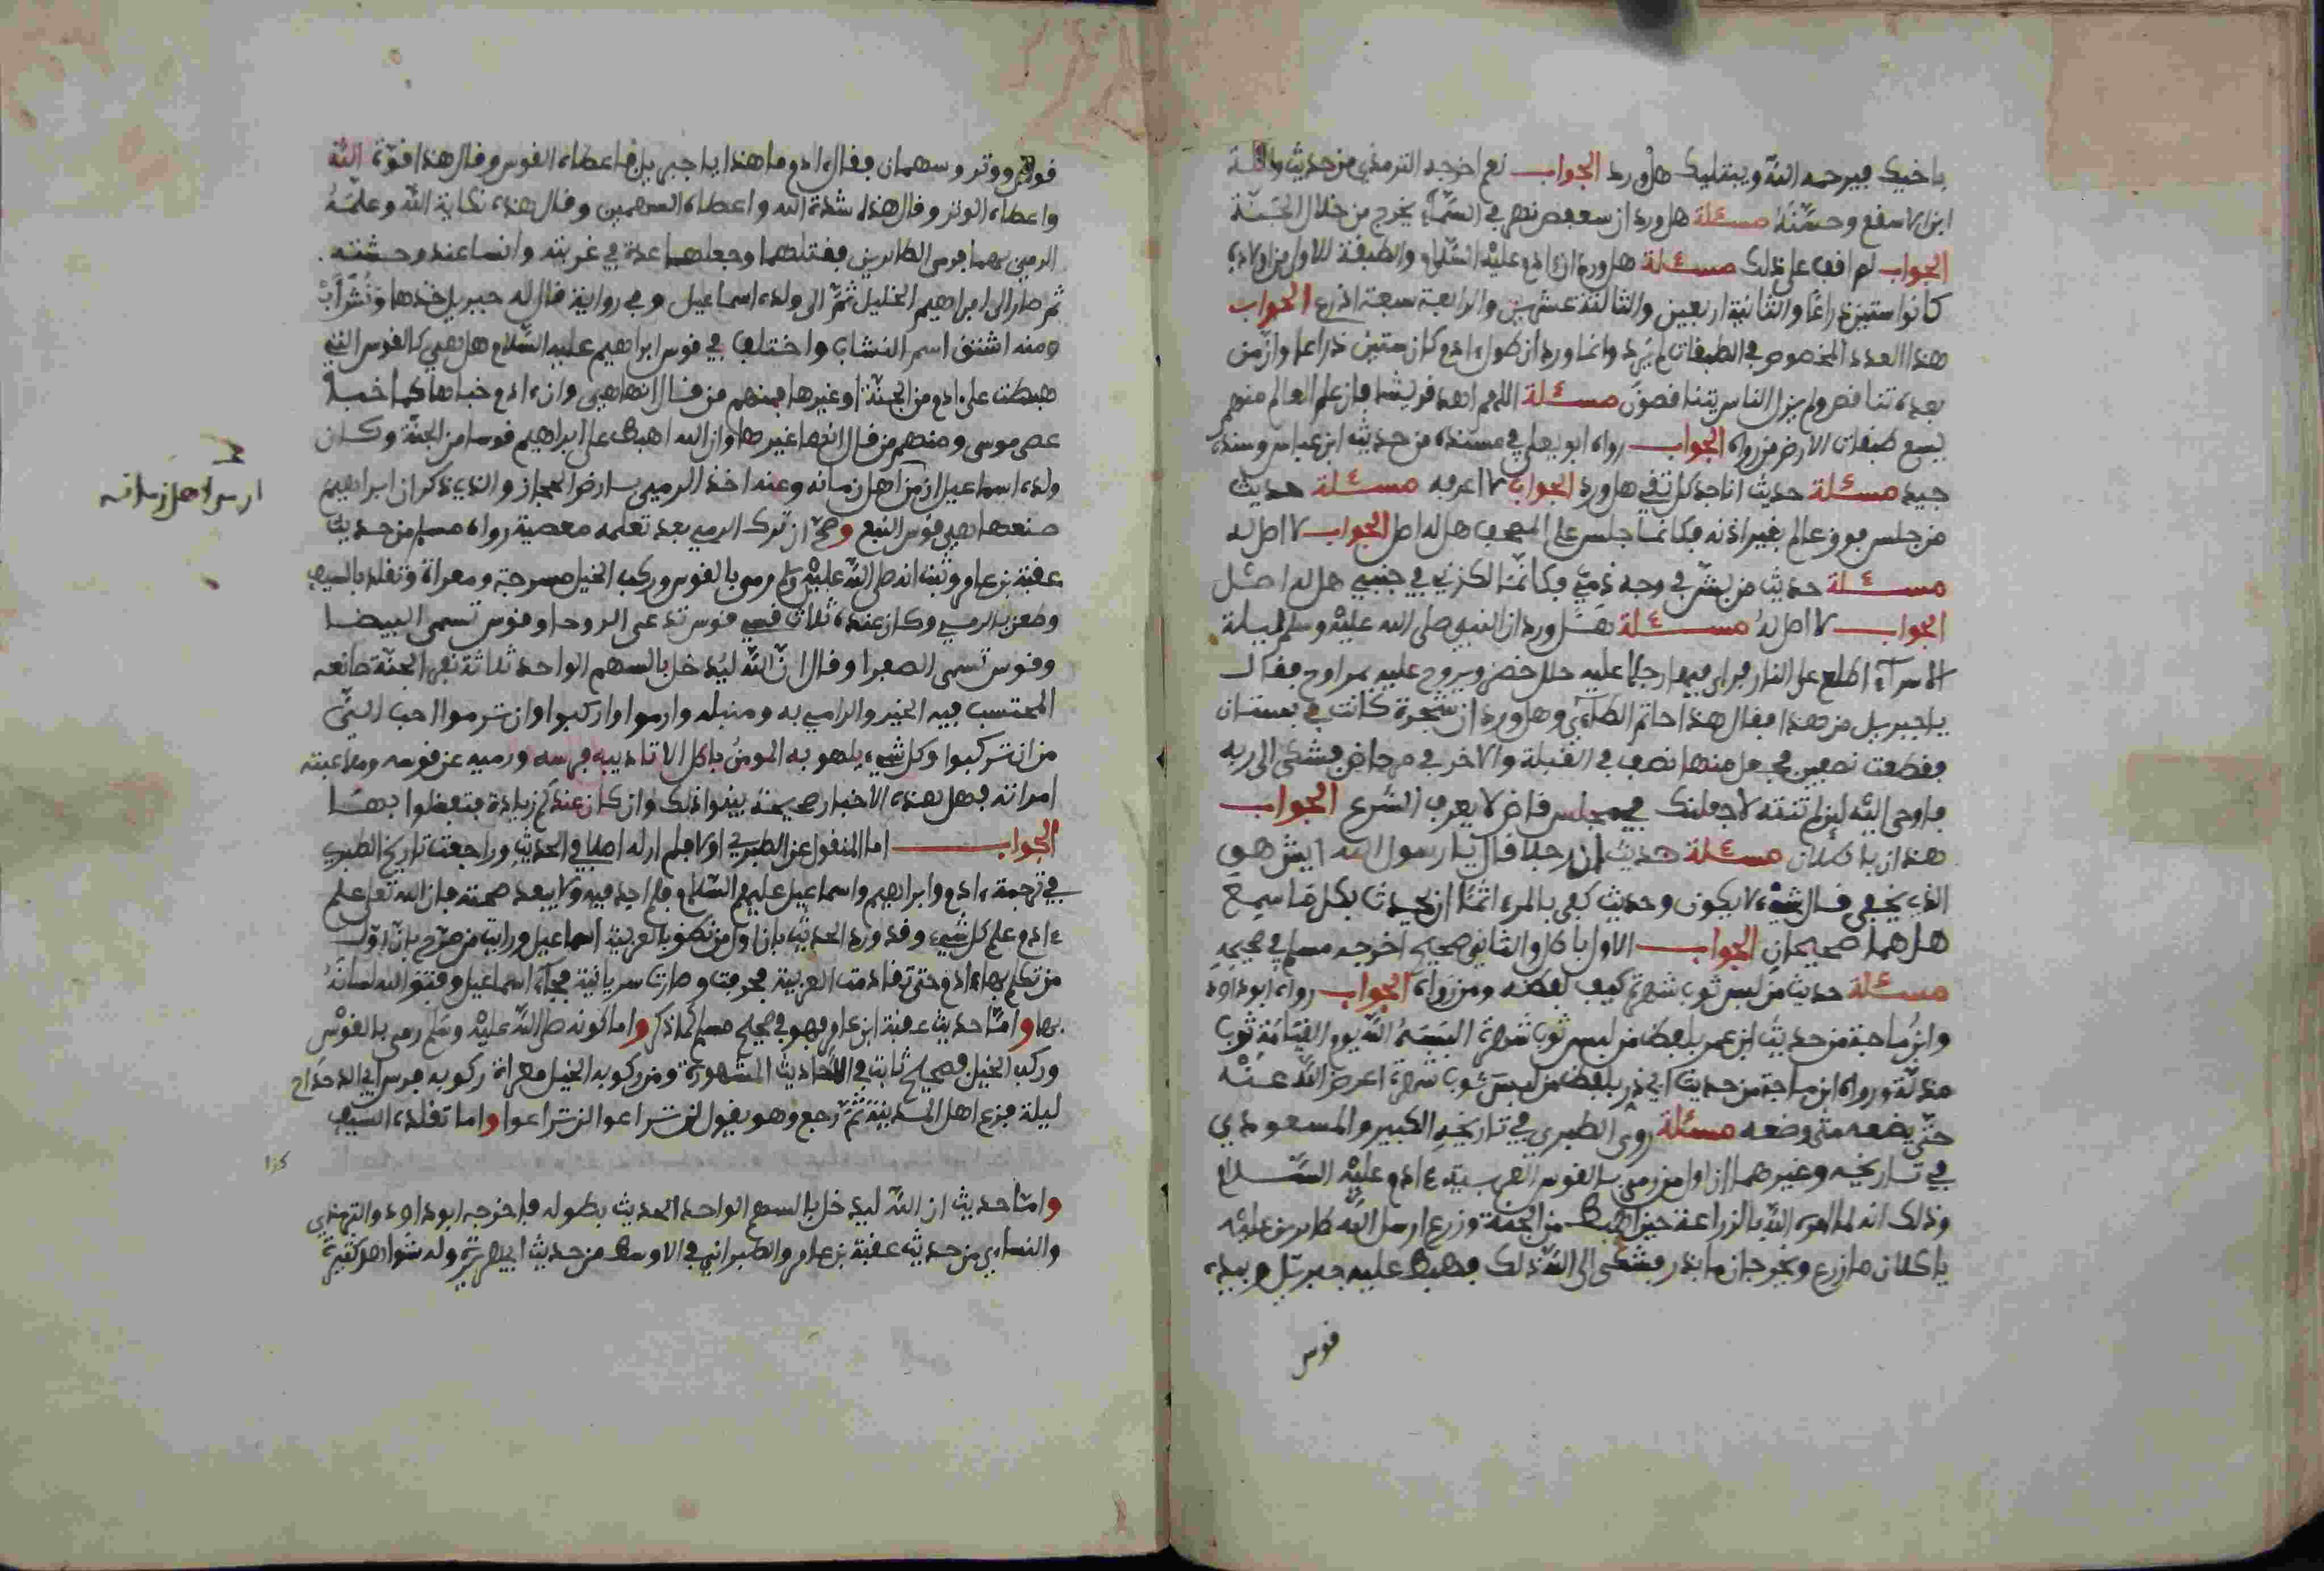 باخيك فيرحمه الله ويبتليك هل ورد الجواب نعم اخرجه الترمذي من حديث واثلة
ابن الاسقع وحسّنه مسئلة هل ورد ان سعفص نهر في السماء يخرج من خلال الجنة
الجواب لم اقف على ذلك مسئلة هل ورد ان ءادم عليه السلام والطبقة الاولى من اولاده
كانوا ستين ذراعًا والثانية اربعين والثالثة عشرين والرابعة سبعة اذرع الجواب
هذا العدد المخصوص في الطبقات لم يرد وانما ورد ان طول ءادم كان ستين ذراعا وان من
بعده تناقص ولم يزل الناس يتناقصون مسئلة اللهم اهد قريشا فان علم العالم منهم
يسع طبقات الارض من رواه الجواب رواه ابو يعلى في مسنده من حديث ابن عباس وسنده
جيد مسئلة حديث انا جد كل تقي هل ورد الجواب لا اعرفه مسئلة حديث
من جلس فوق عالم بغير اذنه فكانما جلس على المصحف هل له اصل الجواب لا اصل له
مسئلة حديث من بشّ في وجه ذمي فكانما لكزني في جنبي هل له اصل
الجواب لا اصل له مسئلة هل ورد ان النبي صلى الله عليه وسلم ليلة
الاسراء اطلع على النار فراى فيها رجلا عليه حلل خضر ويروح عليه بمراوح فقال
يا جبريل من هذا فقال هذا حاتم الطاءي وهل ورد ان شجرة كانت في بستان
فقطعت نصفين فجعل منها نصف في القبلة والاخر في مرحاض فشكى الى ربه
فاوحى الله لين لم تنته لاجعلنك في مجلس قاض لا يعرف الشرع الجواب
هذان باطلان مسئلة حديث ان رجلا قال يا رسول الله ايش هو
الذي يخفى قال شيء لا يكون وحديث كفى بالمرء اثما ان يحدث بكل ما سمع
هل هما صحيحان الجواب الاول باطل والثاني صحيح اخرجه مسلم في صحيحه
مسئلة حديث من لبس ثوب شهرة كيف لفظه ومن رواه الجواب رواه ابو داود
وابن ماجة من حديث ابن عمر بلفظ من لبس ثوب شهرة البسه الله يوم القيامة ثوب
مذلة ورواه ابن ماجة من حديث ابي ذر بلفظ من لبس ثوب شهرة اعرض الله عنه
حتى يضعه متى وضعه مسئلة روى الطبري في تاريخه الكبير والمسعودي
في تاريخه وغيرهما ان اول من رمى بالقوس العربية ءادم عليه السلام
وذلك انه لما امره الله بالزراعة حين اهبط من الجنة وزرع ارسل الله طائرين عليه
ياكلان ما زرع ويخرجان ما بذر فشكى الى الله ذلك فهبط عليه جبريل وبيده
قوس
قوس ووتر وسهمان فقال ءادم ما هذا يا جبريل فاعطاه القوس وقال هذا قوة الله
واعطاه الوتر وقال هذا شدة الله واعطاه السهمين وقال هذه نكاية الله وعلمه
الرمي بهما فرمى الطايرين فقتلهما وجعلهما عدة في غربته وانسا عند وحشته
ثم صار الى ابراهيم الخليل ثم الى ولده اسماعيل وفي رواية قال له جبريل خذها ونُشّابْ
ومنه اشتق اسم النشاب واختلف في قوس ابراهيم عليه السلام هل هي كالقوس التي
هبطت على ءادم من الجنة او غيرها فمنهم من قال انها هي وان ءادم خباها كما خبا
عصى موسى ومنهم من قال انها غيرها وان الله اهبط على ابراهيم قوسا من الجنة وكان
ولده اسماعيل ارمى اهل زمانه وعنه اخذ الرمي بارض الحجاز والذي ذكر ان ابراهيم
صنعها هي قوس النبع وصح ان ترك الرمي بعد تعلمه معصية رواه مسلم من حديث
عقبة بن عامر وثبت انه صلى الله عليه وسلم رمى بالقوس وركب الخيل مسرجة ومعراة وتقلد بالسيف
وطعن بالرمح وكان عنده ثلاث قسي قوس تدعى الروحا وقوس تسمى البيضا
وقوس تسمى الصفرا وقال ان الله ليدخل بالسهم الواحد ثلاثة نفر الجنة صانعه
المحتسب فيه الخير والرامي به ومنبله وارموا واركبوا وان ترموا احب الي
من ان تركبوا وكل شيء يلهو به المومن باطل الا تاديبه فرسه ورميه عن قوسه وملاعبته
امراته فهل هذه الاخبار صحيحة بينوا ذلك وان كان عندكم زيادة فتفضلوا بها
الجواب اما المنقول عن الطبري اولا فلم ار له اصلا في الحديث وراجعت تاريخ الطبري
في ترجمة ءادم وابراهيم واسماعيل عليهم السلام فلم اجده فيه ولا يبعد صحته فان الله تعلى علم
ءادم علم كل شيء وقد ورد الحديث بان اول من تكلم بالعربية اسماعيل ورايت من صرح بان اول
من تكلم بها ءادم حتى تقادمت العربية فحرفت وصارت سريانية فجاء اسماعيل وفتق الله لسانه
بها واما حديث عقبة ابن عامر فهو في صحيح مسلم كما ذكر واما كونه صلى الله عليه وسلم رمى بالقوس
وركب الخيل فصحيح ثابت في الاحاديث المشهورة ومن ركوبه الخيل معراة ركوبه فرس ابي الدحداح
ليلة فزع اهل المدينة ثم رجع وهو يقول لن تراعوا لن تراعوا واما تقلده السيف
كذا
واما حديث ان الله ليدخل بالسهم الواحد الحديث بطوله فاخرجه ابو داود والترمذي
والنساءي من حديث عقبة بن عامر والطبراني في الاوسط من حديث ابي هريرة وله شواهد كثيرة